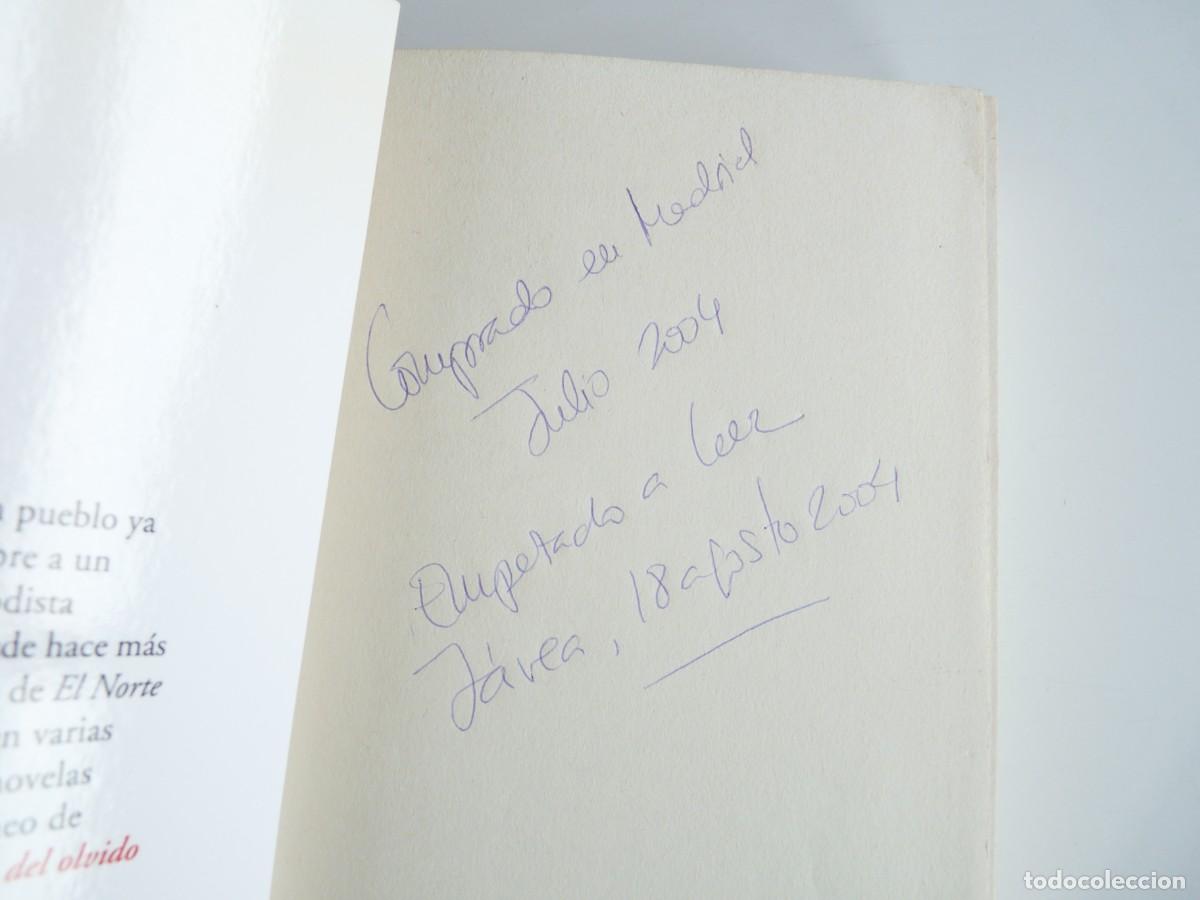 pueblo ya
a un
dista
de hace más
de El Norte
varias
de
del olvido
Comprado en Madrid
Julio 2004
Empezado a leer
Jávea, 18 agosto 2004
todocoleccion